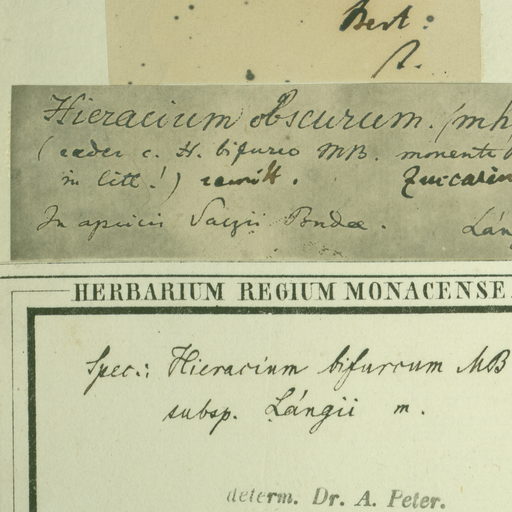 Best:
Hieracium obscurum. (mh
(eadem c. H. bifurco MB. monente
in litt!)
In apricis Pendæ. Láng
HERBARIUM REGIUM MONACENSE.
Spec.: Hieracium bifurcum MB
subsp. Lángii m.
determ. Dr. A. Peter.